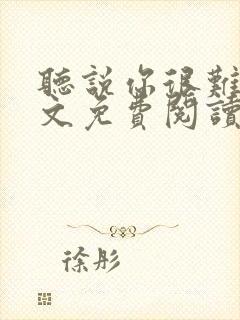 聽說你很難
文免費閱讀
徐彤